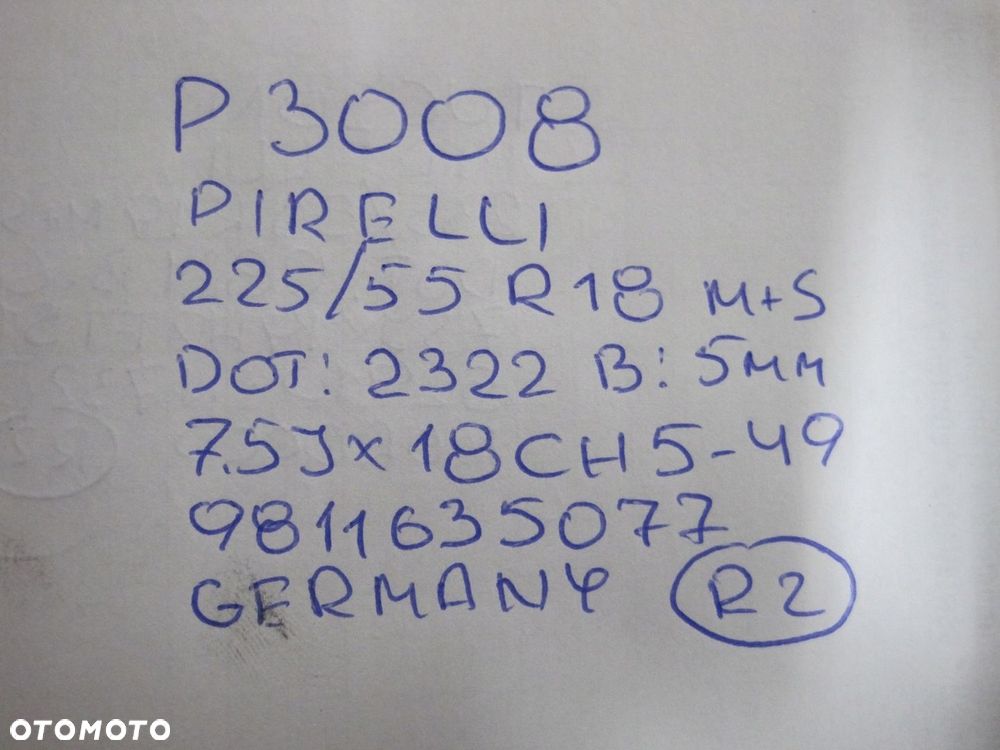 P 3008
PIRELLI
225/55 R18 M+S
DOT: 2322 B: 5MM
7.5J x 18 CH 5-49
9811635077
GERMANY R2
OTOMOTO